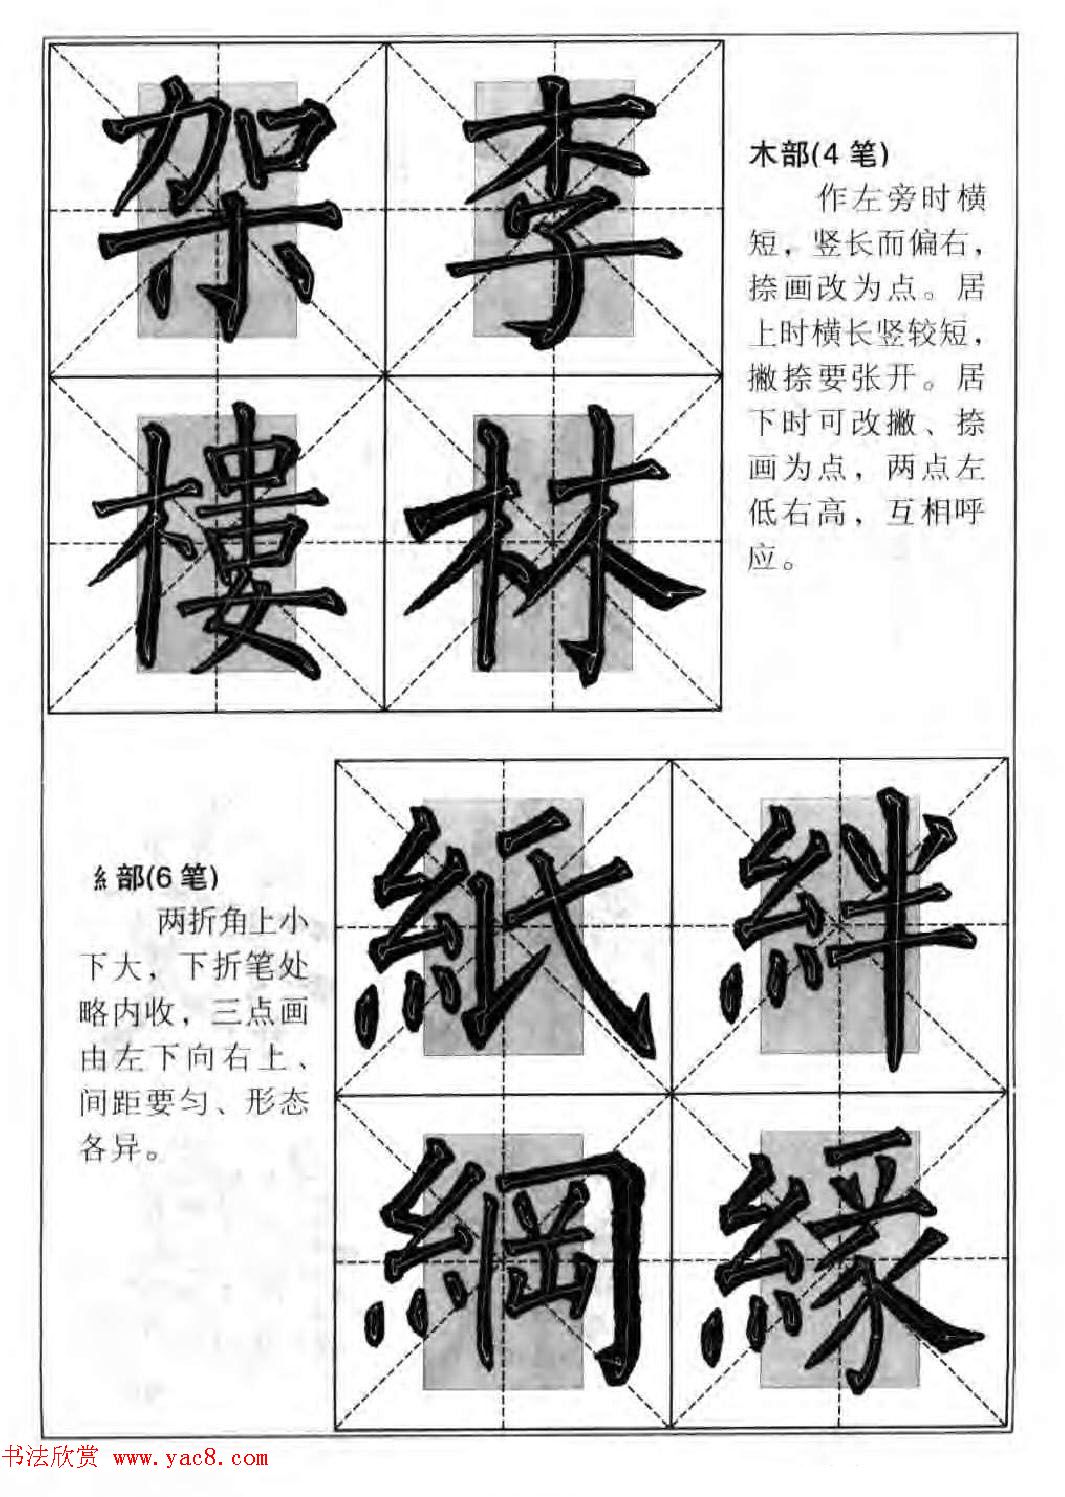 架 李
樓 林
木部(4 笔)
作左旁时横
短，竖长而偏右，
捺画改为点。居
上时横长竖较短，
撇捺要张开。居
下时可改撇、捺
画为点，两点左
低右高，互相呼
应。
糹部(6 笔)
两折角上小
下大，下折笔处
略内收，三点画
由左下向右上、
间距要匀、形态
各异。
紙 絆
綱 緣
书法欣赏 www.yac8.com